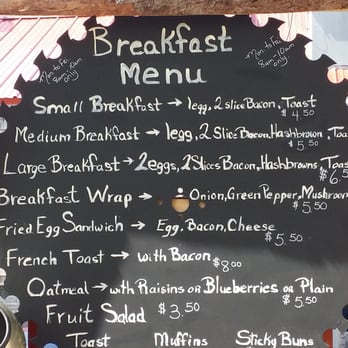 Breakfast
Menu
Mon to Fri
8am-10am
only
Mon to Fri
8am-10am
only
Small Breakfast → 1egg, 2 slice Bacon, Toast
$4.50
Medium Breakfast → 1egg, 2 Slice Bacon, Hashbrown, Toa
$5.50
Large Breakfast → 2eggs, 2Slices Bacon, Hashbrowns, Toas
$6.5
Breakfast Wrap → Onion, Green Pepper, Mushroom
$5.50
Fried Egg Sandwich → Egg, Bacon, Cheese
$5.50
French Toast → with Bacon $8.00
Oatmeal → with Raisins or Blueberries or Plain
$5.50
Fruit Salad $3.50
Toast Muffins Sticky Buns